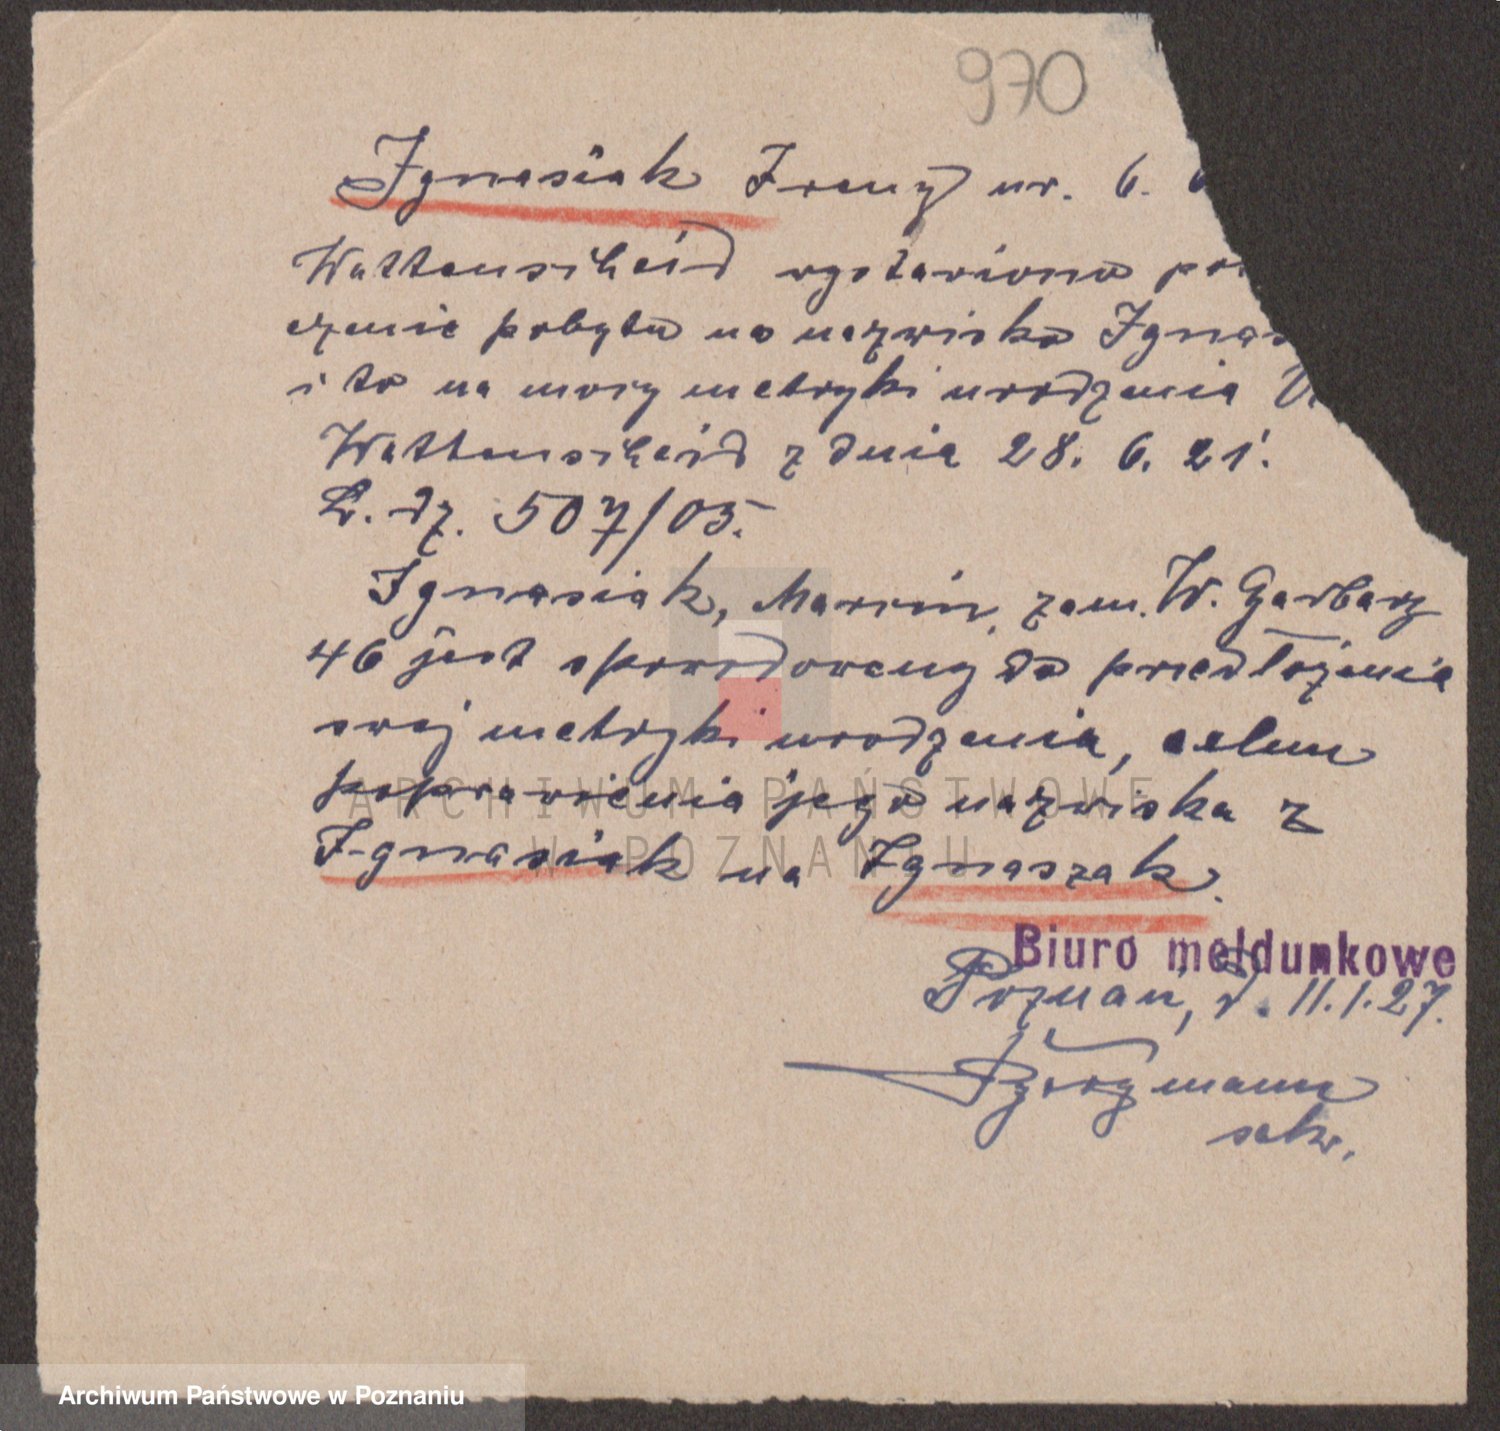 970
Ignasiak Franz ur. 6.
Wattenscheid wystawiono
czenie pobytu na nazwisko Ignas
i to na mocy metryki urodzenia
Wattenscheid z dnia 28. 6. 21.
L. dz. 507/05.
Ignasiak, Marcin, zam. W. Garbary
46 jest spowodowany do przedłożenia
swej metryki urodzenia, celem
poprawienia jego nazwiska z
Ignasiak na Ignaszak.
Biuro meldunkowe
Poznań, d. 11.1.27.
sekr.
ARCHIWUM PAŃSTWOWE
W POZNANIU
Archiwum Państwowe w Poznaniu